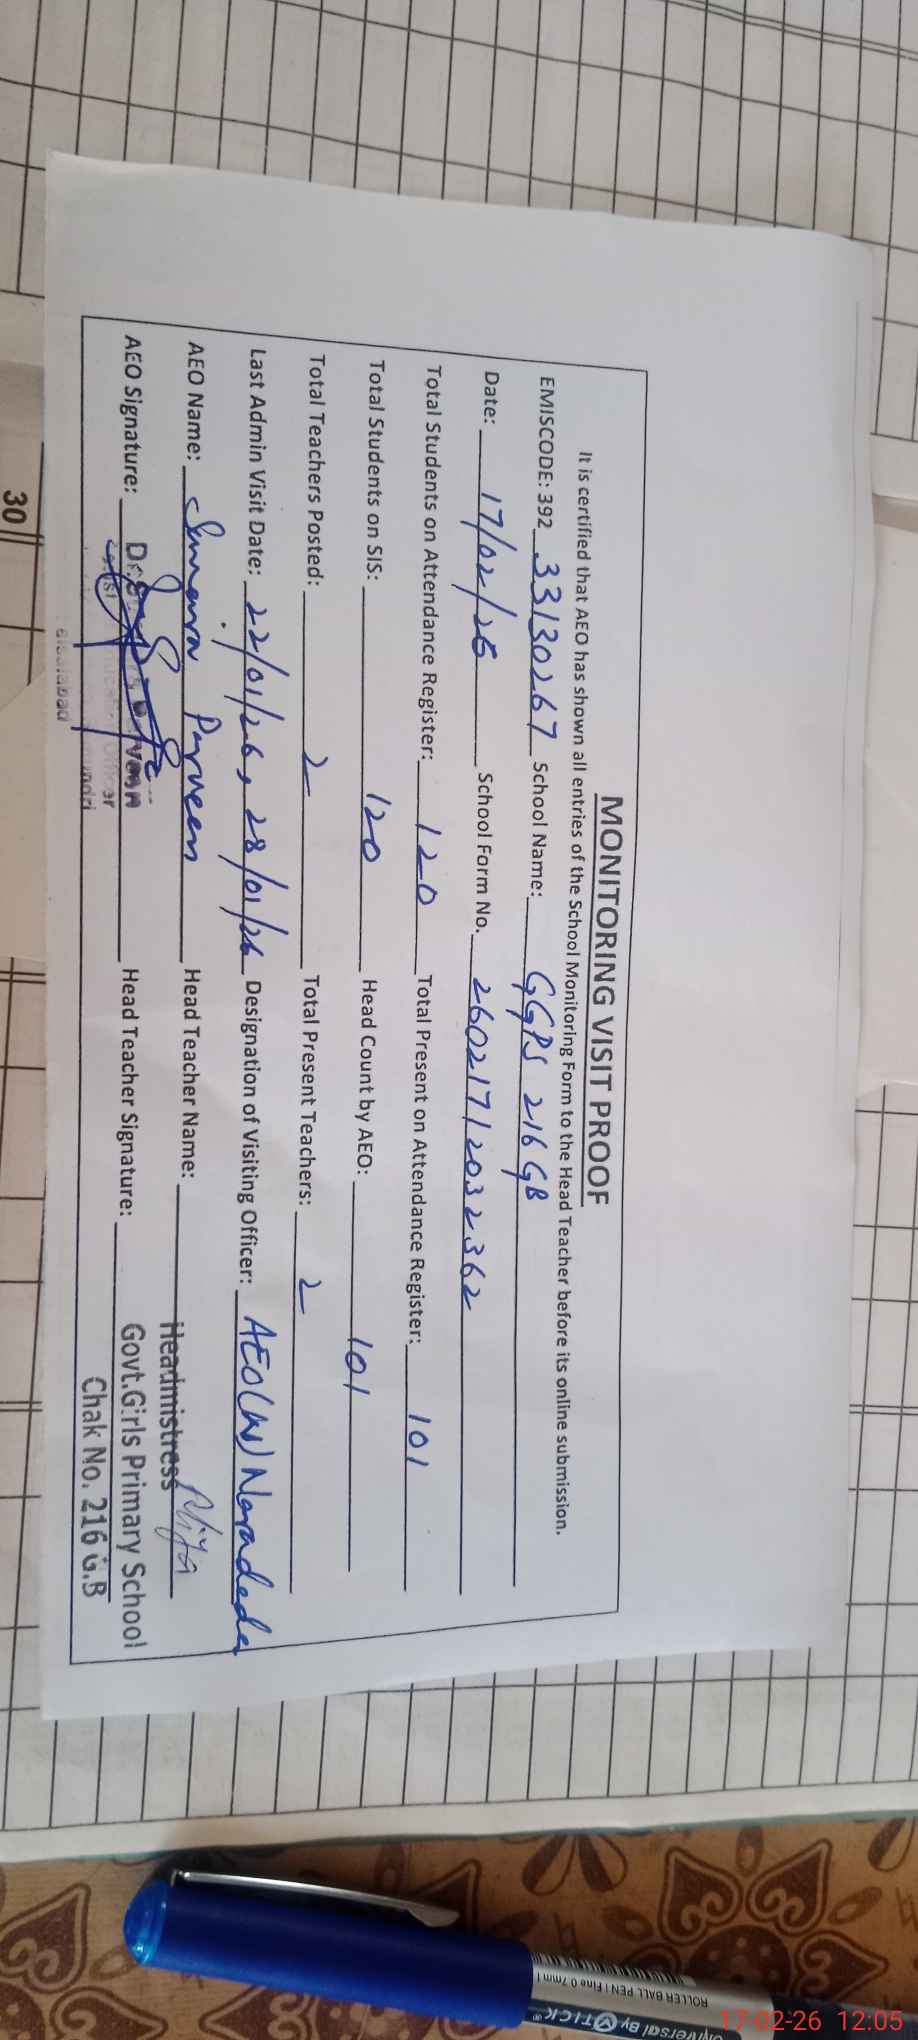 MONITORING VISIT PROOF
It is certified that AEO has shown all entries of the School Monitoring Form to the Head Teacher before its online submission.
EMISCODE: 392 33130267 School Name: GGPS 216 GB
Date: 17/02/26 School Form No. 26021712032362
Total Students on Attendance Register: 120 Total Present on Attendance Register: 101
Total Students on SIS: 120 Head Count by AEO: 101
Total Teachers Posted: 2 Total Present Teachers: 2
Last Admin Visit Date: 22/01/26, 28/01/26 Designation of Visiting Officer: AEO(W)
AEO Name: Parveen Head Teacher Name:
Headmistress
AEO Signature: Head Teacher Signature:
Govt.Girls Primary School
Chak No. 216 G.B
30
ROLLER BALL PEN | Fine 0.7mm
Universal By TICK
17-02-26 12:05